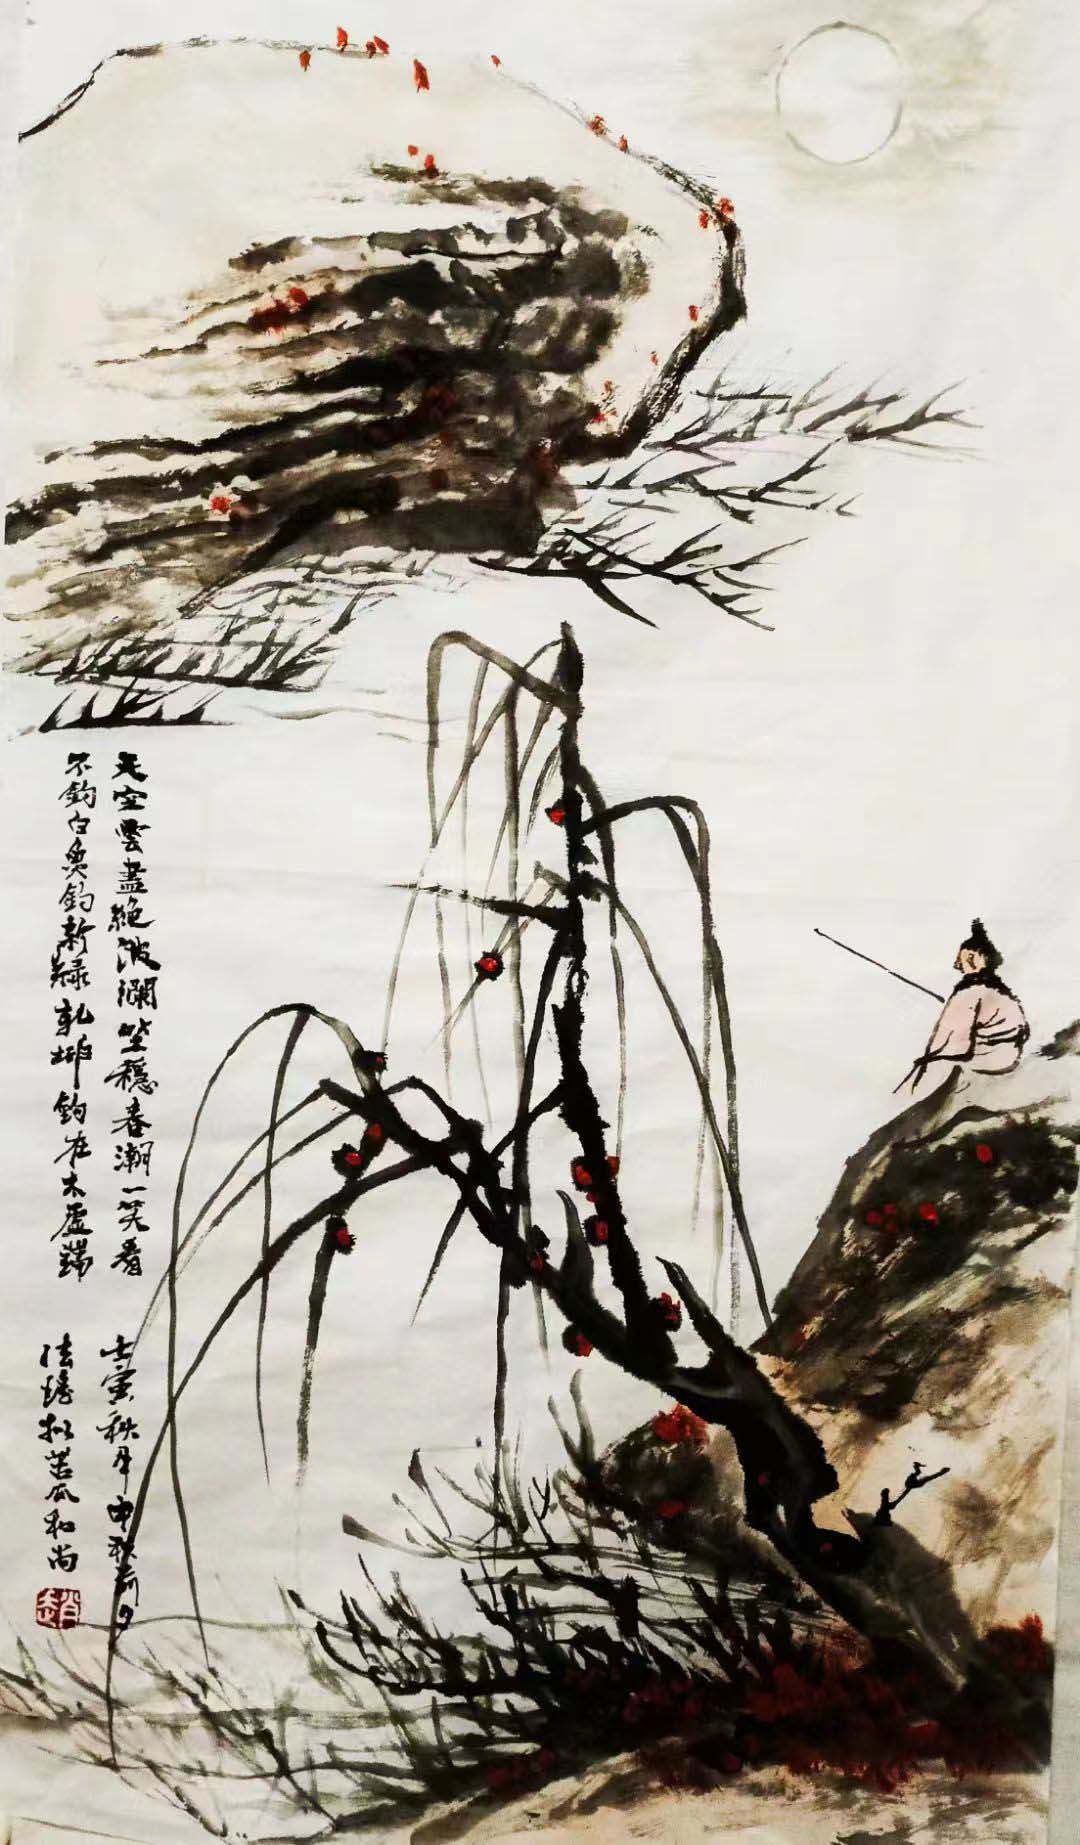 天空雲盡絶波瀾坐穩春潮一笑看
不釣白魚釣新緑乾坤釣在太虛端
壬寅秋年中秋前夕
法蟾拟苦瓜和尚